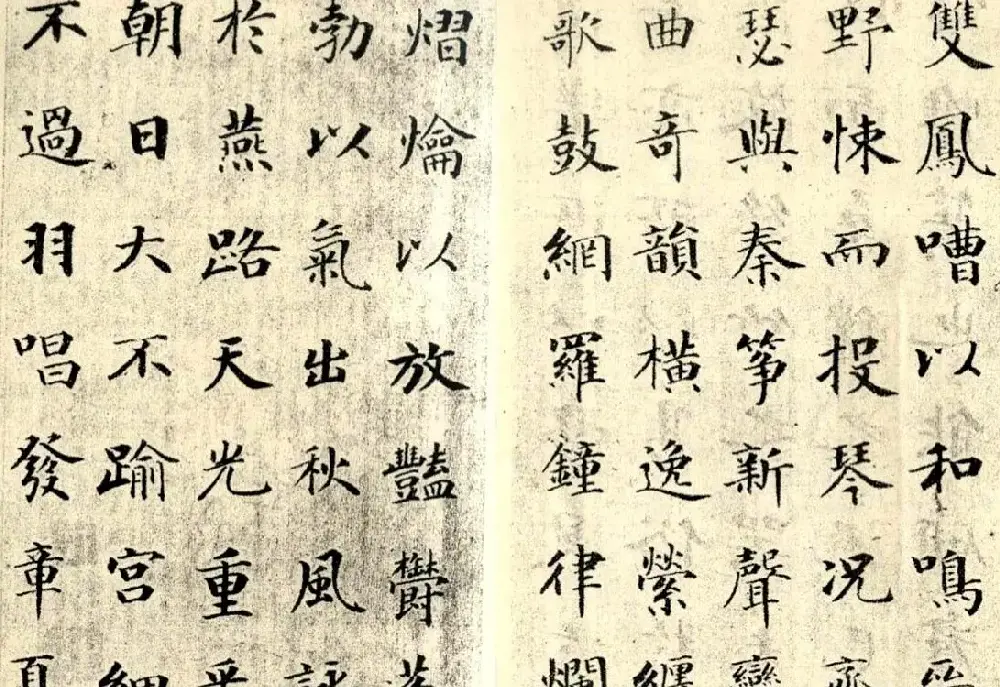 雙鳳嘈以和鳴晉
野悚而投琴况齊
瑟與秦箏新聲變
曲奇韻橫逸縈纏
歌鼓網羅鐘律爛
熠爚以放豔鬱蓬
勃以氣出秋風詠
於燕路天光重乎
朝日大不踰宮細
不過羽唱發章夏